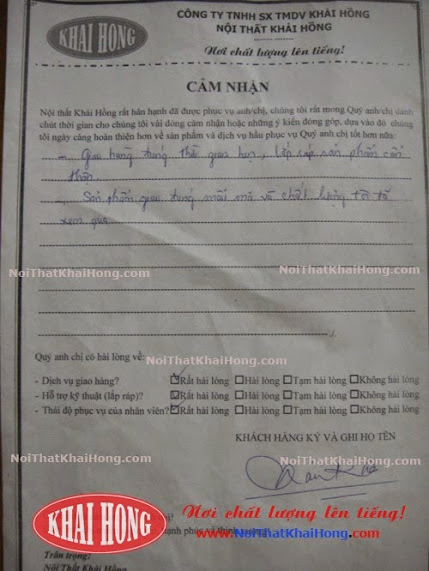 KHAI HONG
CÔNG TY TNHH SX TMDV KHẢI HỒNG
NỘI THẤT KHẢI HỒNG
Nơi chất lượng lên tiếng!
CẢM NHẬN
Nội thất Khải Hồng rất hân hạnh đã được phục vụ anh/chị, chúng tôi rất mong Quý anh/chị dành
chút thời gian cho chúng tôi vài dòng cảm nhận hoặc những ý kiến đóng góp, dựa vào đó chúng
tôi ngày càng hoàn thiện hơn về sản phẩm và dịch vụ hầu phục vụ Quý anh chị tốt hơn nữa:
- Giao hàng đúng thời gian hẹn, lắp ráp sản phẩm cẩn
thận.
- Sản phẩm giao đúng mẫu mã và chất lượng tôi đã
xem qua
NoiThatKhaiHong.com NoiThatKhaiHong.com
Quý anh chị có hài lòng về:
NoiThatKhaiHong.com
- Dịch vụ giao hàng? ☑Rất hài lòng ☐Hài lòng ☐Tạm hài lòng ☐Không hài lòng
- Hỗ trợ kỹ thuật (lắp ráp)? ☑Rất hài lòng ☐Hài lòng ☐Tạm hài lòng ☐Không hài lòng
- Thái độ phục vụ của nhân viên? ☑Rất hài lòng ☐Hài lòng ☐Tạm hài lòng ☐Không hài lòng
KHÁCH HÀNG KÝ VÀ GHI HỌ TÊN
NoiThatKhaiHong.com NoiThatKhaiHong.com
KHAI HONG
Nơi chất lượng lên tiếng!
www.NoiThatKhaiHong.com
Trân trọng!
Nội Thất Khải Hồng